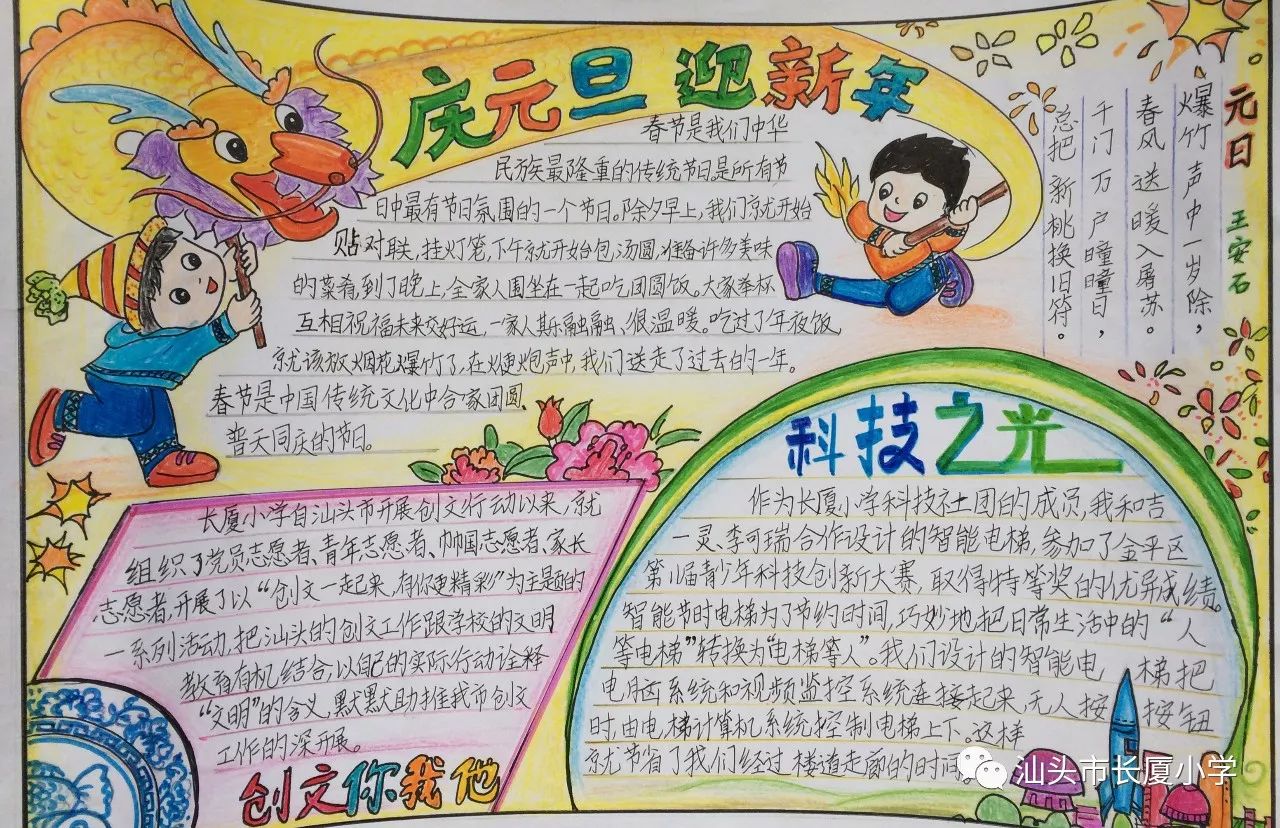 庆元旦 迎新年
春节是我们中华
民族最隆重的传统节日,是所有节
日中最有节日氛围的一个节日。除夕早上,我们就开始
贴对联,挂灯笼,下午就开始包汤圆,准备许多美味
的菜肴,到了晚上,全家人围坐在一起吃团圆饭。大家举杯
互相祝福未来交好运,一家人其乐融融、很温暖。吃过了年夜饭,
就该放烟花爆竹了,在鞭炮声中,我们送走了过去的一年。
春节是中国传统文化中合家团圆、
普天同庆的节日。
元日 王安石
爆竹声中一岁除,
春风送暖入屠苏。
千门万户曈曈日,
总把新桃换旧符。
长厦小学自汕头市开展创文行动以来,就
组织了党员志愿者、青年志愿者、巾帼志愿者、家长
志愿者,开展了以“创文一起来,有你更精彩”为主题的
一系列活动,把汕头的创文工作跟学校的文明
教育有机结合,以自己的实际行动诠释
“文明”的含义,默默助推我市创文
工作的深开展。
创文你我他
科技之光
作为长厦小学科技社团的成员,我和吉
一灵、李可瑞合作设计的智能电梯,参加了金平区
第11届青少年科技创新大赛,取得特等奖的优异成绩。
智能节时电梯为了节约时间,巧妙地把日常生活中的“人
等电梯”转换为“电梯等人”。我们设计的智能电 梯把
电脑系统和视频监控系统连接起来,无人按 按钮
时,由电梯计算机系统控制电梯上下。这样
就节省了我们经过楼道走廊的时间
汕头市长厦小学